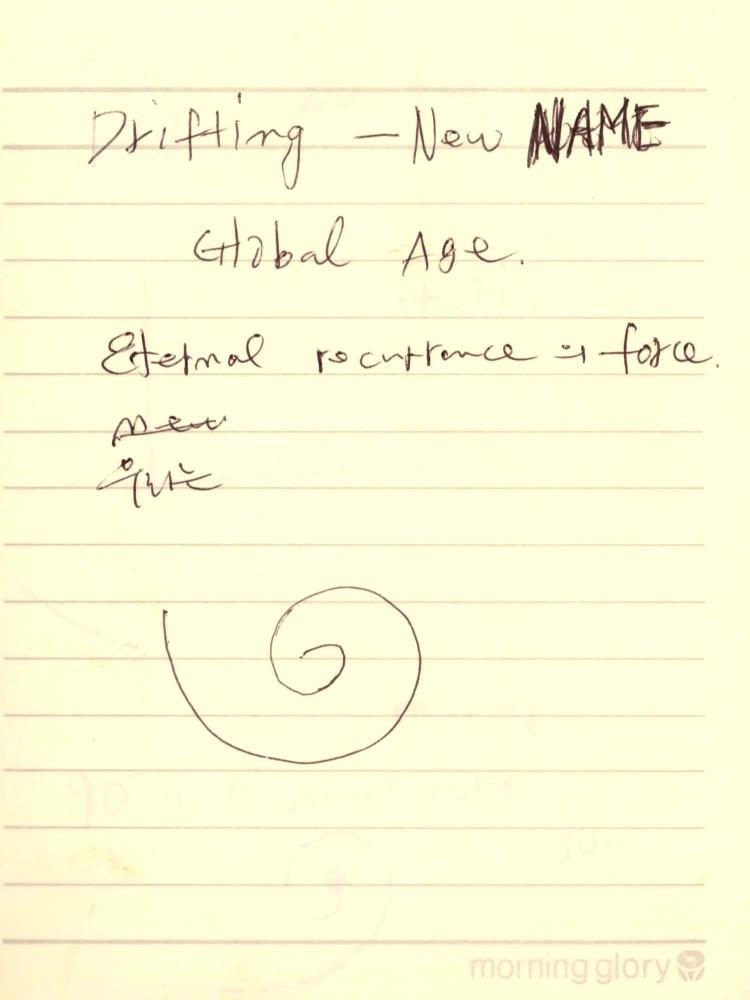 Drifting — New NAME
Global Age.
Eternal recurrence의 force.
morning glory